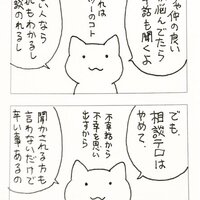 や仲の良い
が悩んでたら
話も聞くよ
れは
ーのコト
い人なら
もわかるし
談のれるし
でも、
相談テロは
やめて、
不幸話から
不幸を思い
出すから
聞かされる方も
言わないだけで
辛い事あるの